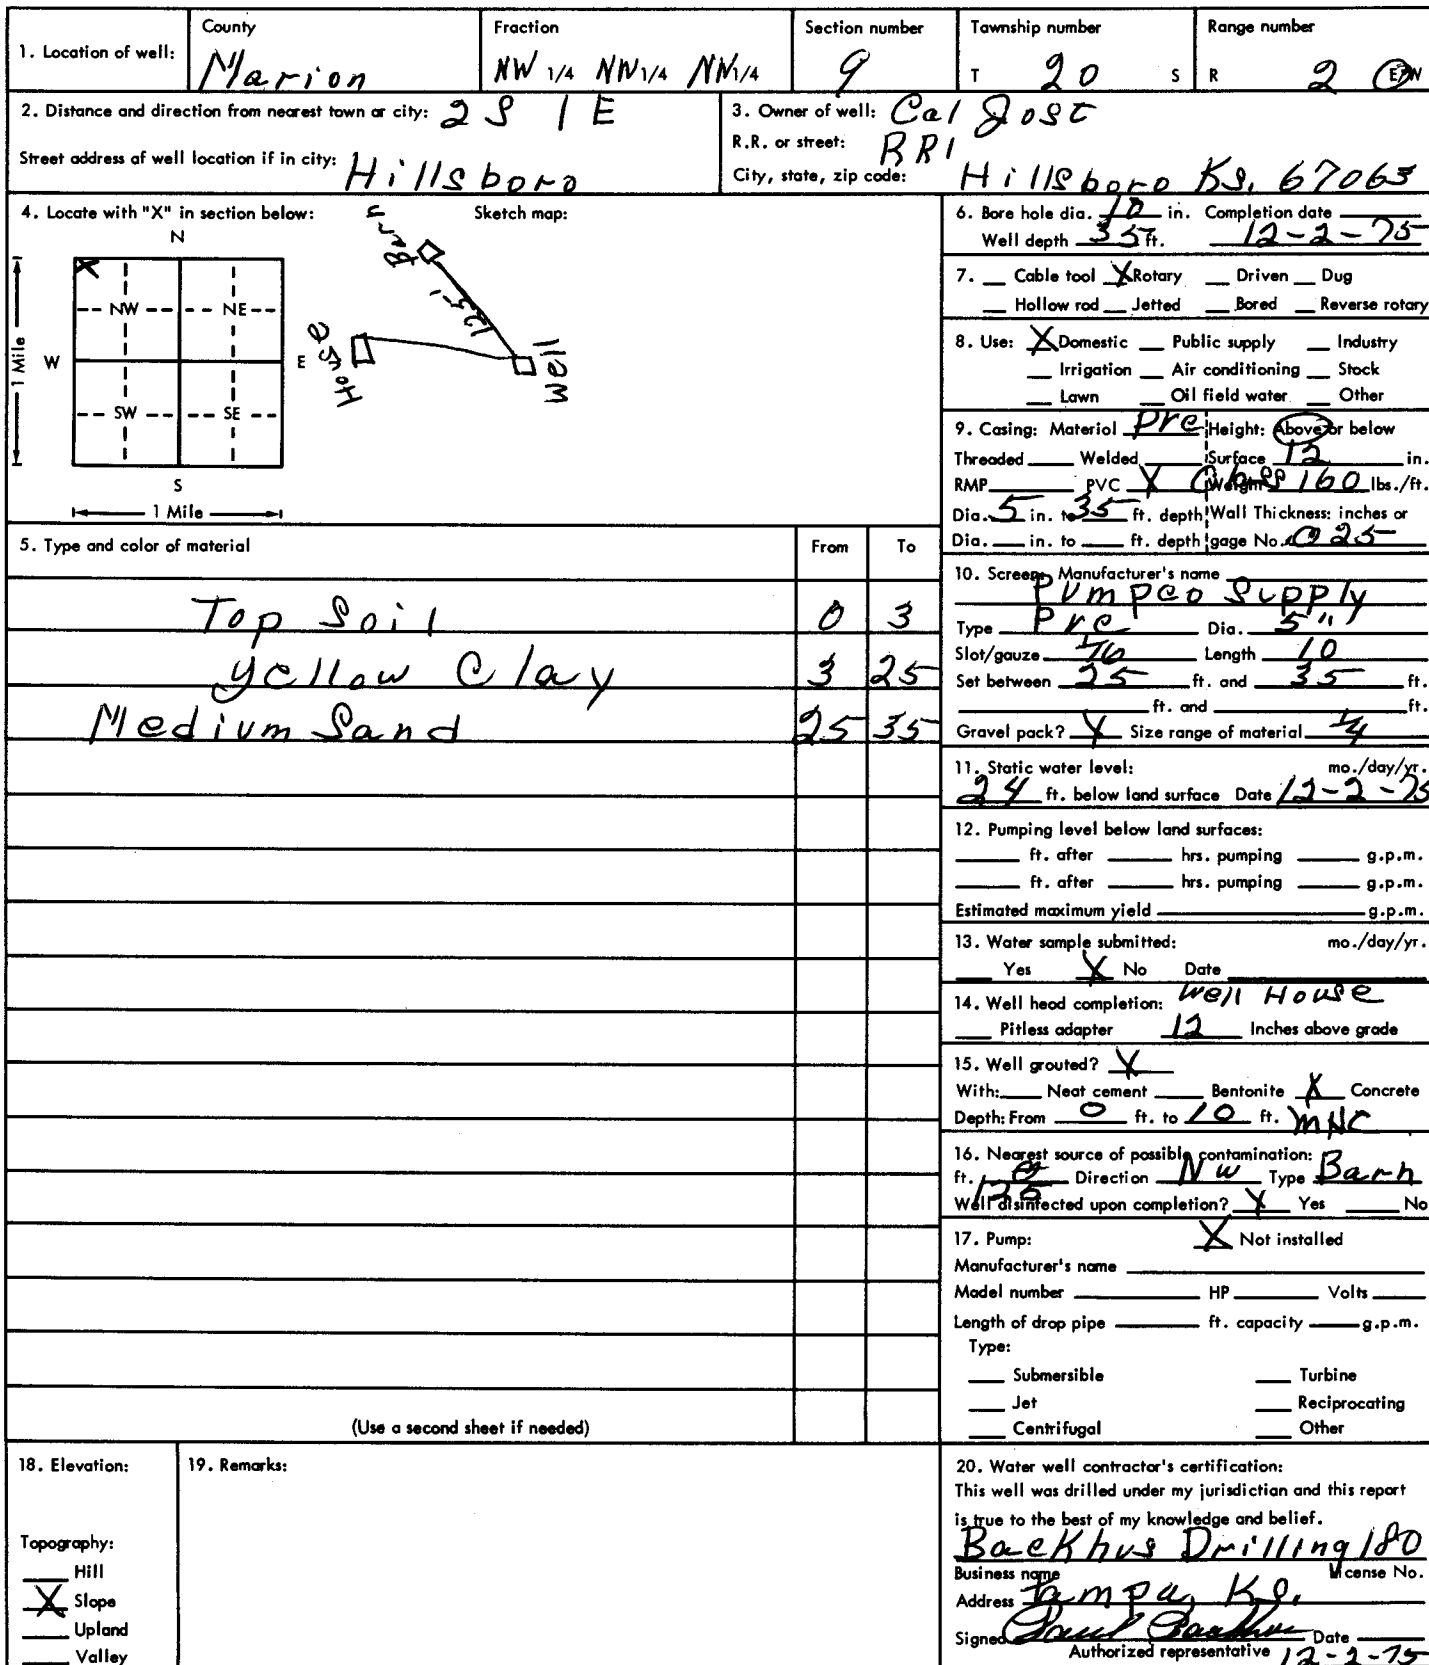 1. Location of well:
County
Marion
Fraction
NW 1/4 NW 1/4 NW 1/4
Section number
9
Township number
T 20 S
Range number
R 2 E/W
2. Distance and direction from nearest town or city: 2 S 1 E
Street address of well location if in city: Hillsboro
3. Owner of well: Cal Jost
R.R. or street: RR1
City, state, zip code: Hillsboro Ks. 67063
4. Locate with "X" in section below:
N
NW NE
W E
SW SE
S
1 Mile
1 Mile
X
Sketch map:
Barn
125'
House
Well
5. Type and color of material From To
Top Soil 0 3
yellow Clay 3 25
Medium Sand 25 35
(Use a second sheet if needed)
6. Bore hole dia. 10 in. Completion date
Well depth 35 ft. 12-2-75
7. __ Cable tool X Rotary __ Driven __ Dug
__ Hollow rod __ Jetted __ Bored __ Reverse rotary
8. Use: X Domestic __ Public supply __ Industry
__ Irrigation __ Air conditioning __ Stock
__ Lawn __ Oil field water __ Other
9. Casing: Material pvc Height: Above or below
Threaded ____ Welded ____ Surface 12 in.
RMP ____ PVC X Weight Class 160 lbs./ft.
Dia. 5 in. to 35 ft. depth Wall Thickness: inches or
Dia. ___ in. to ___ ft. depth gage No. 025
10. Screen: Manufacturer's name
Pumpco Supply
Type Pvc Dia. 5"
Slot/gauze 1/16 Length 10
Set between 25 ft. and 35 ft.
____ ft. and ____ ft.
Gravel pack? X Size range of material 1/4
11. Static water level: mo./day/yr.
24 ft. below land surface Date 12-2-75
12. Pumping level below land surfaces:
____ ft. after ____ hrs. pumping ____ g.p.m.
____ ft. after ____ hrs. pumping ____ g.p.m.
Estimated maximum yield ____ g.p.m.
13. Water sample submitted: mo./day/yr.
__ Yes X No Date ____
14. Well head completion: Well House
__ Pitless adapter 12 Inches above grade
15. Well grouted? X
With: __ Neat cement __ Bentonite X Concrete
Depth: From 0 ft. to 10 ft. MHC
16. Nearest source of possible contamination:
ft. 125 Direction NW Type Barn
Well disinfected upon completion? X Yes __ No
17. Pump: X Not installed
Manufacturer's name ____
Model number ____ HP ____ Volts ____
Length of drop pipe ____ ft. capacity ____ g.p.m.
Type:
__ Submersible __ Turbine
__ Jet __ Reciprocating
__ Centrifugal __ Other
18. Elevation:
Topography:
__ Hill
X Slope
__ Upland
__ Valley
19. Remarks:
20. Water well contractor's certification:
This well was drilled under my jurisdiction and this report
is true to the best of my knowledge and belief.
Backhus Drilling 180
Business name License No.
Address Tampa, Ks.
Signed Date
Authorized representative 12-2-75